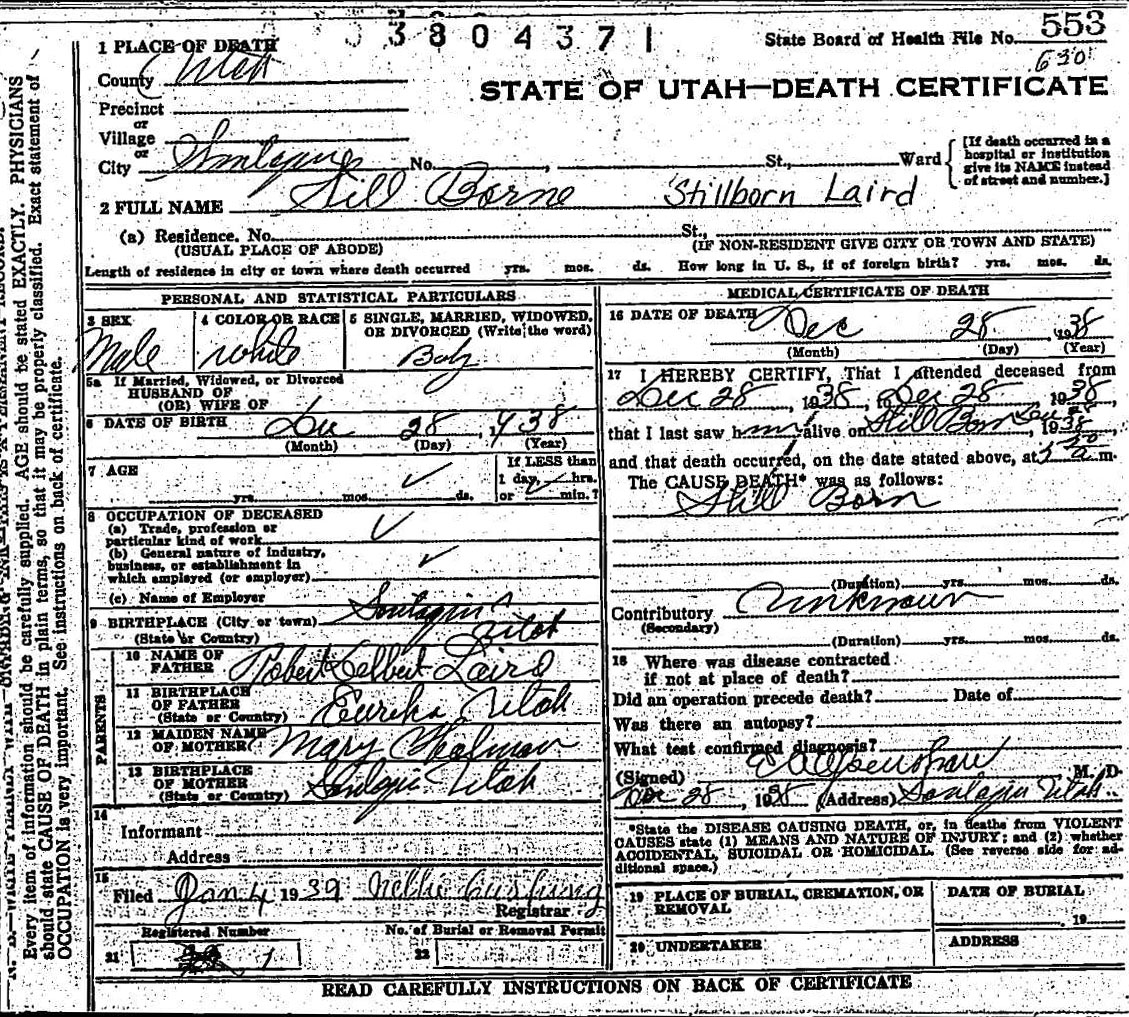 3804371
State Board of Health File No. 553
630
STATE OF UTAH—DEATH CERTIFICATE
1 PLACE OF DEATH
County Utah
Precinct
or
Village
or
City Santaquin No. , St., Ward
[If death occurred in a
hospital or institution
give its NAME instead
of street and number.]
2 FULL NAME Still Borne Stillborn Laird
(a) Residence. No. St.,
(USUAL PLACE OF ABODE) (IF NON-RESIDENT GIVE CITY OR TOWN AND STATE)
Length of residence in city or town where death occurred yrs. mos. ds. How long in U. S., if of foreign birth? yrs. mos. ds.
PERSONAL AND STATISTICAL PARTICULARS
3 SEX
Male
4 COLOR OR RACE
white
5 SINGLE, MARRIED, WIDOWED,
OR DIVORCED (Write the word)
Baby
5a If Married, Widowed, or Divorced
HUSBAND OF
(OR) WIFE OF
6 DATE OF BIRTH Dec 28, 1938
(Month) (Day) (Year)
7 AGE
yrs. mos. ds.
If LESS than
1 day, hrs.
or min.?
8 OCCUPATION OF DECEASED
(a) Trade, profession or
particular kind of work
(b) General nature of industry,
business, or establishment in
which employed (or employer)
(c) Name of Employer
9 BIRTHPLACE (City or town) Santaquin
(State or Country) Utah
PARENTS
10 NAME OF
FATHER Robert Delbert Laird
11 BIRTHPLACE
OF FATHER
(State or Country) Eureka Utah
12 MAIDEN NAME
OF MOTHER Mary Holman
13 BIRTHPLACE
OF MOTHER
(State or Country) Santaquin Utah
14
Informant
Address
15
Filed Jan 4 1939 Nellie
Registrar
Registered Number
21 1
No. of Burial or Removal Permit
22
MEDICAL CERTIFICATE OF DEATH
16 DATE OF DEATH Dec 28, 1938
(Month) (Day) (Year)
17 I HEREBY CERTIFY, That I attended deceased from
Dec 28, 1938, to Dec 28 1938
that I last saw h alive on Still Born Dec 28 1938,
and that death occurred, on the date stated above, at a m.
The CAUSE DEATH* was as follows:
Still Born
(Duration) yrs. mos. ds.
Contributory Unknown
(Secondary)
(Duration) yrs. mos. ds.
18 Where was disease contracted
if not at place of death?
Did an operation precede death? Date of
Was there an autopsy?
What test confirmed diagnosis?
(Signed) , M. D.
Dec 28, 1938 (Address) Santaquin Utah
*State the DISEASE CAUSING DEATH, or, in deaths from VIOLENT
CAUSES state (1) MEANS AND NATURE OF INJURY; and (2) whether
ACCIDENTAL, SUICIDAL OR HOMICIDAL. (See reverse side for ad-
ditional space.)
19 PLACE OF BURIAL, CREMATION, OR
REMOVAL
DATE OF BURIAL
19
20 UNDERTAKER
ADDRESS
READ CAREFULLY INSTRUCTIONS ON BACK OF CERTIFICATE
Every item of information should be carefully supplied. AGE should be stated EXACTLY. PHYSICIANS
should state CAUSE OF DEATH in plain terms, so that it may be properly classified. Exact statement of
OCCUPATION is very important. See instructions on back of certificate.